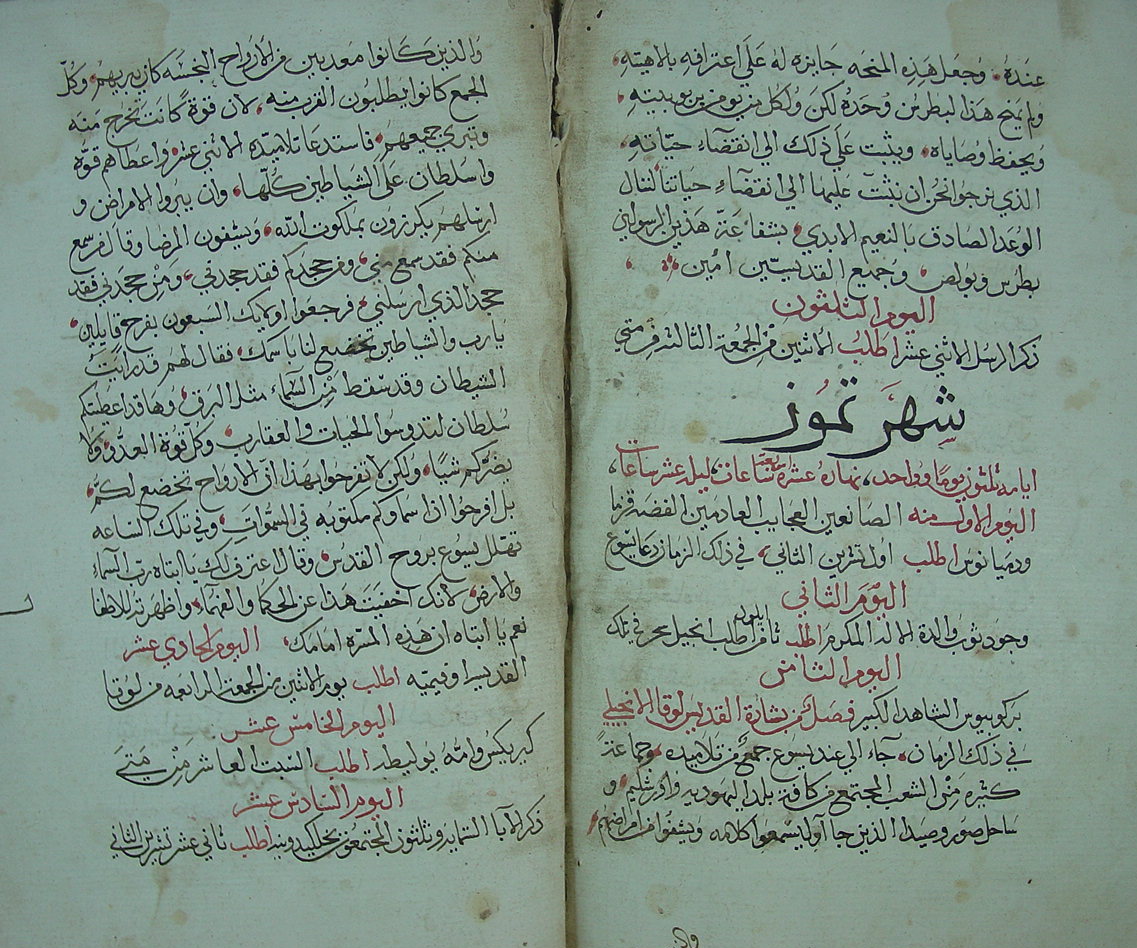 عنده وجعل هذه المنحه جايزه له على اعترافه بالاهيته
ولم يمنح هذا لبطرس وحده لكن ولكل من يومن بربوبيته
ويحفظ وصاياه ويثبت على ذلك الي انقضاء حياته
الذي نرجوا نحن ان نثبت عليها الي انقضاء حياتنا لننال
الوعد الصادق بالنعيم الابدي بشفاعة هذين الرسولين
بطرس وبولص وجميع القديسين امين
اليوم الثلثون
ذكر الرسل الاثني عشر اطلب الاثنين من الجمعة الثالثة من متي
شهر تموز
ايامه ثلثون يوما وواحد نهاره عشره ساعات ليله عشر ساعات
اليوم الاول منه الصانعين العجايب العادمين الفضه قزما
ودميانوس اطلب اول تشرين الثاني في ذلك الزمان دعا يسوع
اليوم الثاني
وجود ثوب والدة الاله المكرم اطلب ثامن ايلول اطلب انجيل سحر في تلك
اليوم الثامن
بركوبيوس الشاهد الكبير فصل من بشارة القديس لوقا الانجيلي
في ذلك الزمان جاء الي عند يسوع جمع من تلاميذه وجماعة
كثيره من الشعب المجتمع من كافة بلد اليهوديه واورشليم و
ساحل صور وصيدا الذين جاآو ليسمعوا كلامه ويشفوا من امراضهم
والذين كانوا معذبين من الارواح النجسه كان يبريهم وكل
الجمع كانوا يطلبون القرب منه لان قوة كانت تخرج منه
وتبري جميعهم فاستدعا تلاميذه الاثني عشر واعطاهم قوة
واسلطان على الشياطين كلها وان يبروا الامراض و
ارسلهم يكرزون بملكوت الله ويشفون المرضا وقال من سمع
منكم فقد سمع مني ومن جحدكم فقد جحدني ومن جحدني فقد
جحد الذي ارسلني فرجعوا اوليك السبعون بفرح قايلين
يا رب والشياطين تخضع لنا باسمك فقال لهم قد رايت
الشيطان وقد سقط من السماء مثل البرق وها قد اعطيتكم
سلطان لتدوسوا الحيات والعقارب وكل قوة العدو ولا
يضركم شيا ولكن لا تفرحوا بهذا ان الارواح تخضع لكم
بل افرحوا ان اسماوكم مكتوبه في السموات وفي تلك الساعه
تهلل يسوع بروح القدس وقال اعترف لك يا ابتاه رب السماء
والارض لانك اخفيت هذا عن الحكما والفهماء واظهرته للاطفا
نعم يا ابتاه ان هذه المسره امامك اليوم الحادي عشر
القديسه اوفيميه اطلب يوم الاثنين من الجمعة الرابعه من لوقا
اليوم الخامس عشر
كيريكس وامه يوليطه اطلب السبت العاشر من متي
اليوم السادس عشر
ذكر الابا الستمايه وثلثون المجتمعون بخلكيدونيه اطلب ثاني عشر تشرين الثاني